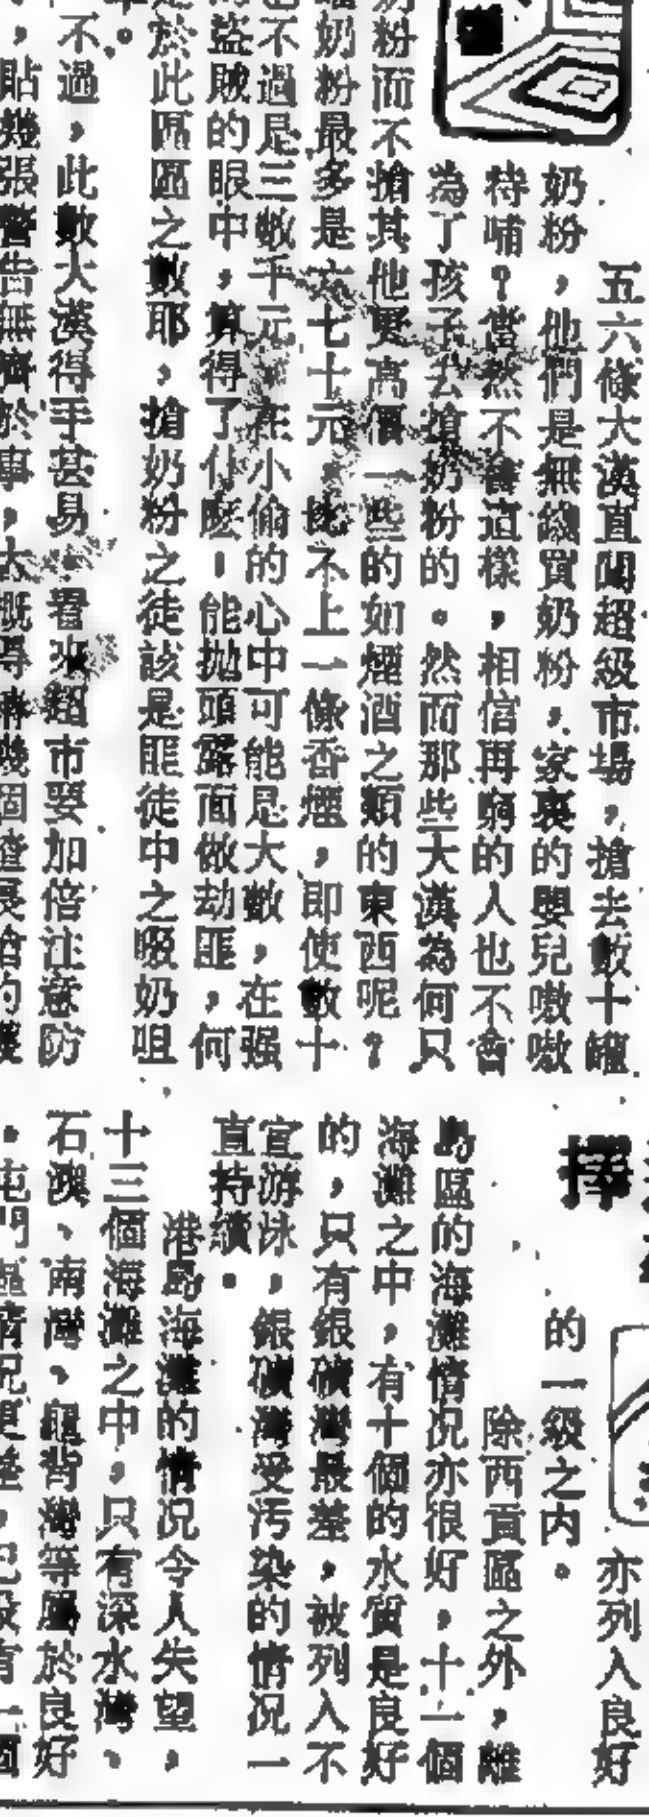 五六條大漢直闖超級市場，搶去數十罐
奶粉，他們是無錢買奶粉，家裏的嬰兒嗷嗷
待哺？當然不會這樣，相信再窮的人也不會
為了孩子去搶奶粉的。然而那些大漢為何只
奶粉而不搶其他更高價一些的如煙酒之類的東西呢？
罐奶粉最多是六七十元，比不上一條香煙，即使數十
也不過是三數千元，在小偷的心中可能是大數，在强
盜賊的眼中，算得了什麽！能拋頭露面做劫匪，何
於此區區之數耶，搶奶粉之徒該是匪徒中之啜奶咀
。
不過，此數大漢得手甚易，看來超市要加倍注意防
，貼幾張警告無濟於事，大概得請幾個
擇
亦列入良好
的一級之内。
除西貢區之外，離
島區的海灘情况亦很好，十一個
海灘之中，有十個的水質是良好
的，只有銀礦灣最差，被列入不
宜游泳，銀礦灣受污染的情况一
直持續。
港島海灘的情况令人失望，
十三個海灘之中，只有深水灣、
石澳、南灣、龜背灣等屬於良好
，屯門區情况更差，已沒有一個